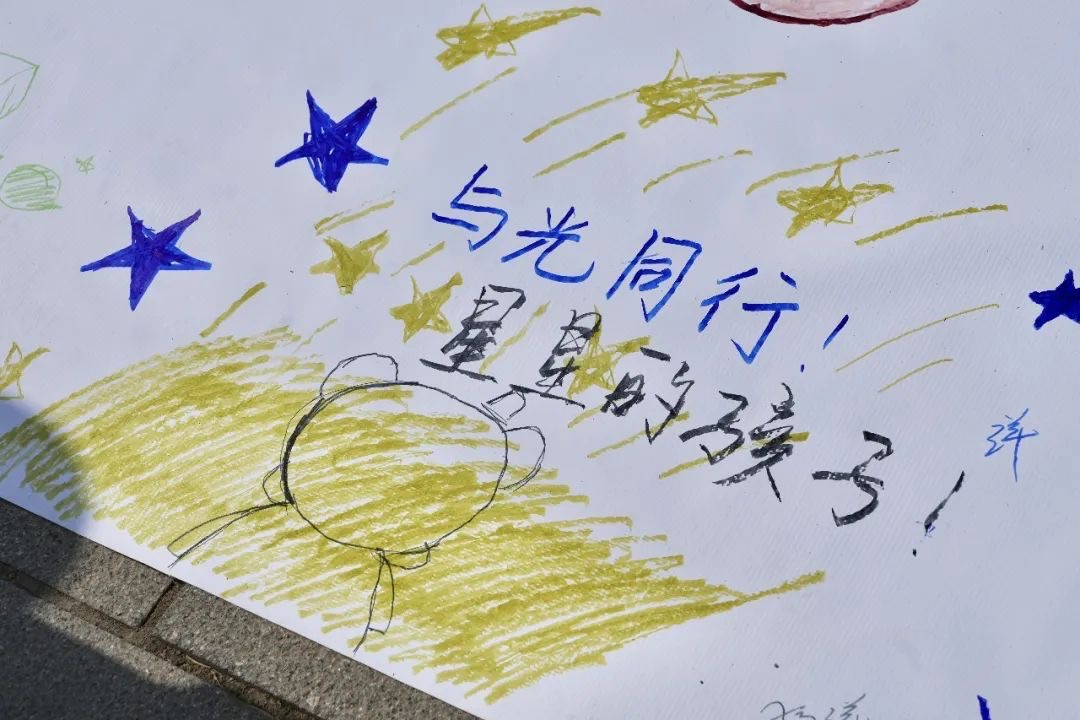 与光同行!
星星的孩子!
洋